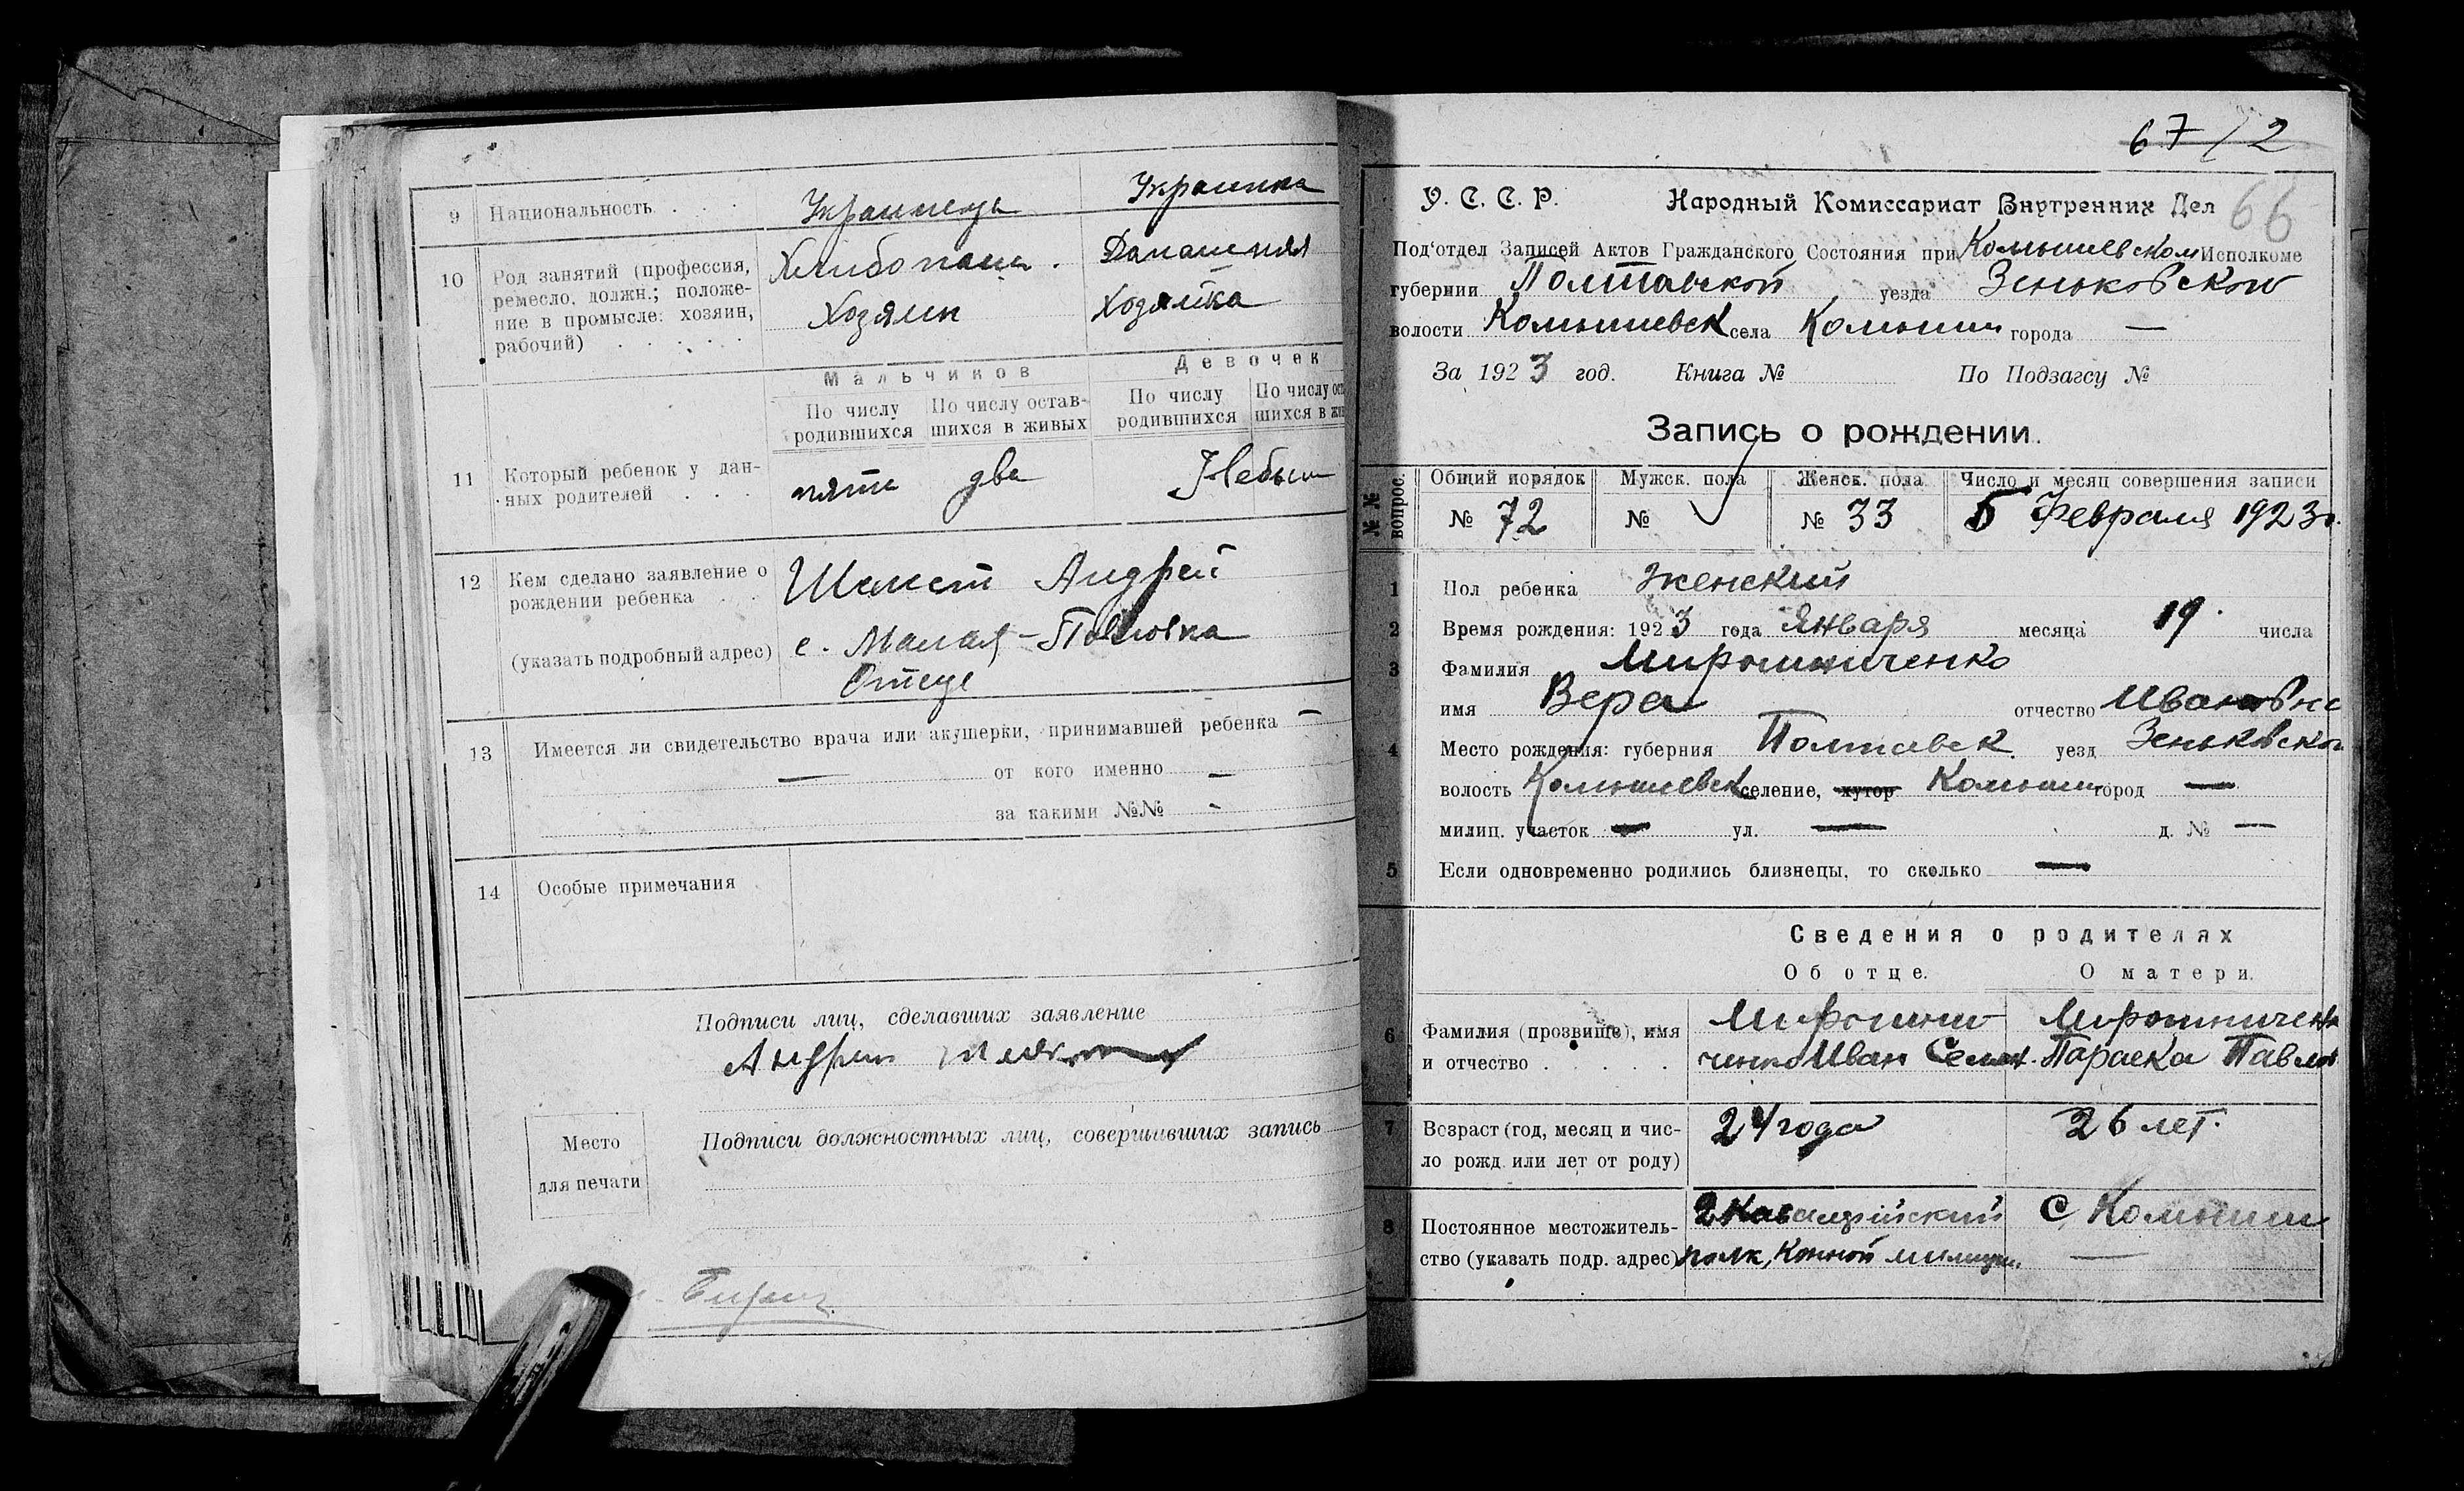 9 Национальность . . . Украинець Украинка
10 Род занятий (профессия, Хлибопаш. Домашняя
ремесло, должн.; положе-
ние в промысле: хозяин, Хозяин Хозяйка
рабочий) . . . . .
Мальчиков Девочек
По числу По числу остав- По числу По числу ост
родившихся шихся в живых родившихся шихся в жи
11 Который ребенок у дан-
ных родителей . . . пять два Небыло
12 Кем сделано заявление о Шемет Андрей
рождении ребенка . .
(указать подробный адрес) с. Малая-Павловка
Отец
13 Имеется ли свидетельство врача или акушерки, принимавшей ребенка —
— от кого именно —
за какими №№ -
14 Особые примечания
Подписи лиц, сделавших заявление
Андрей
Место Подписи должностных лиц, совершивших запись
для печати
67/2
У. С. С. Р. Народный Комиссариат Внутренних Дел 66
Под'отдел Записей Актов Гражданского Состояния при Комышевском Исполкоме
губернии Полтавской уезда Зеньковского
волости Комышевск села Комыши города —
За 1923 год. Книга № По Подзагсу №
Запись о рождении.
№№ вопрос. Общий порядок Мужск. пола Женск. пола Число и месяц совершения записи
№ 72 № № 33 5 Февраля 1923г.
1 Пол ребенка Женский
2 Время рождения: 1923 года Января месяца 19 числа
3 Фамилия Мирошниченко
имя Вера отчество Ивановна
4 Место рождения: губерния Полтавск. уезд Зеньковского
волость Комышевск селение, хутор Комыши город —
милиц. участок — ул. — д. № —
5 Если одновременно родились близнецы, то сколько —
Сведения о родителях
Об отце. О матери.
6 Фамилия (прозвище), имя Мирошни- Мирошниченк
и отчество . . . . . ченко Иван Семен. Параска Павлов
7 Возраст (год, месяц и чис- 24 года 26 лет.
ло рожд. или лет от роду)
8 Постоянное местожитель- 2 Кавалерийский С Комыши
ство (указать подр. адрес) полк, Конной милиции. —